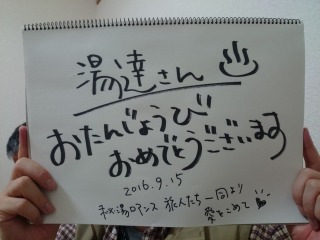 湯達さん♨
おたんじょうび
おめでとうございます
2016.9.15
秘湯ロマンス 旅人たち一同より
愛をこめて